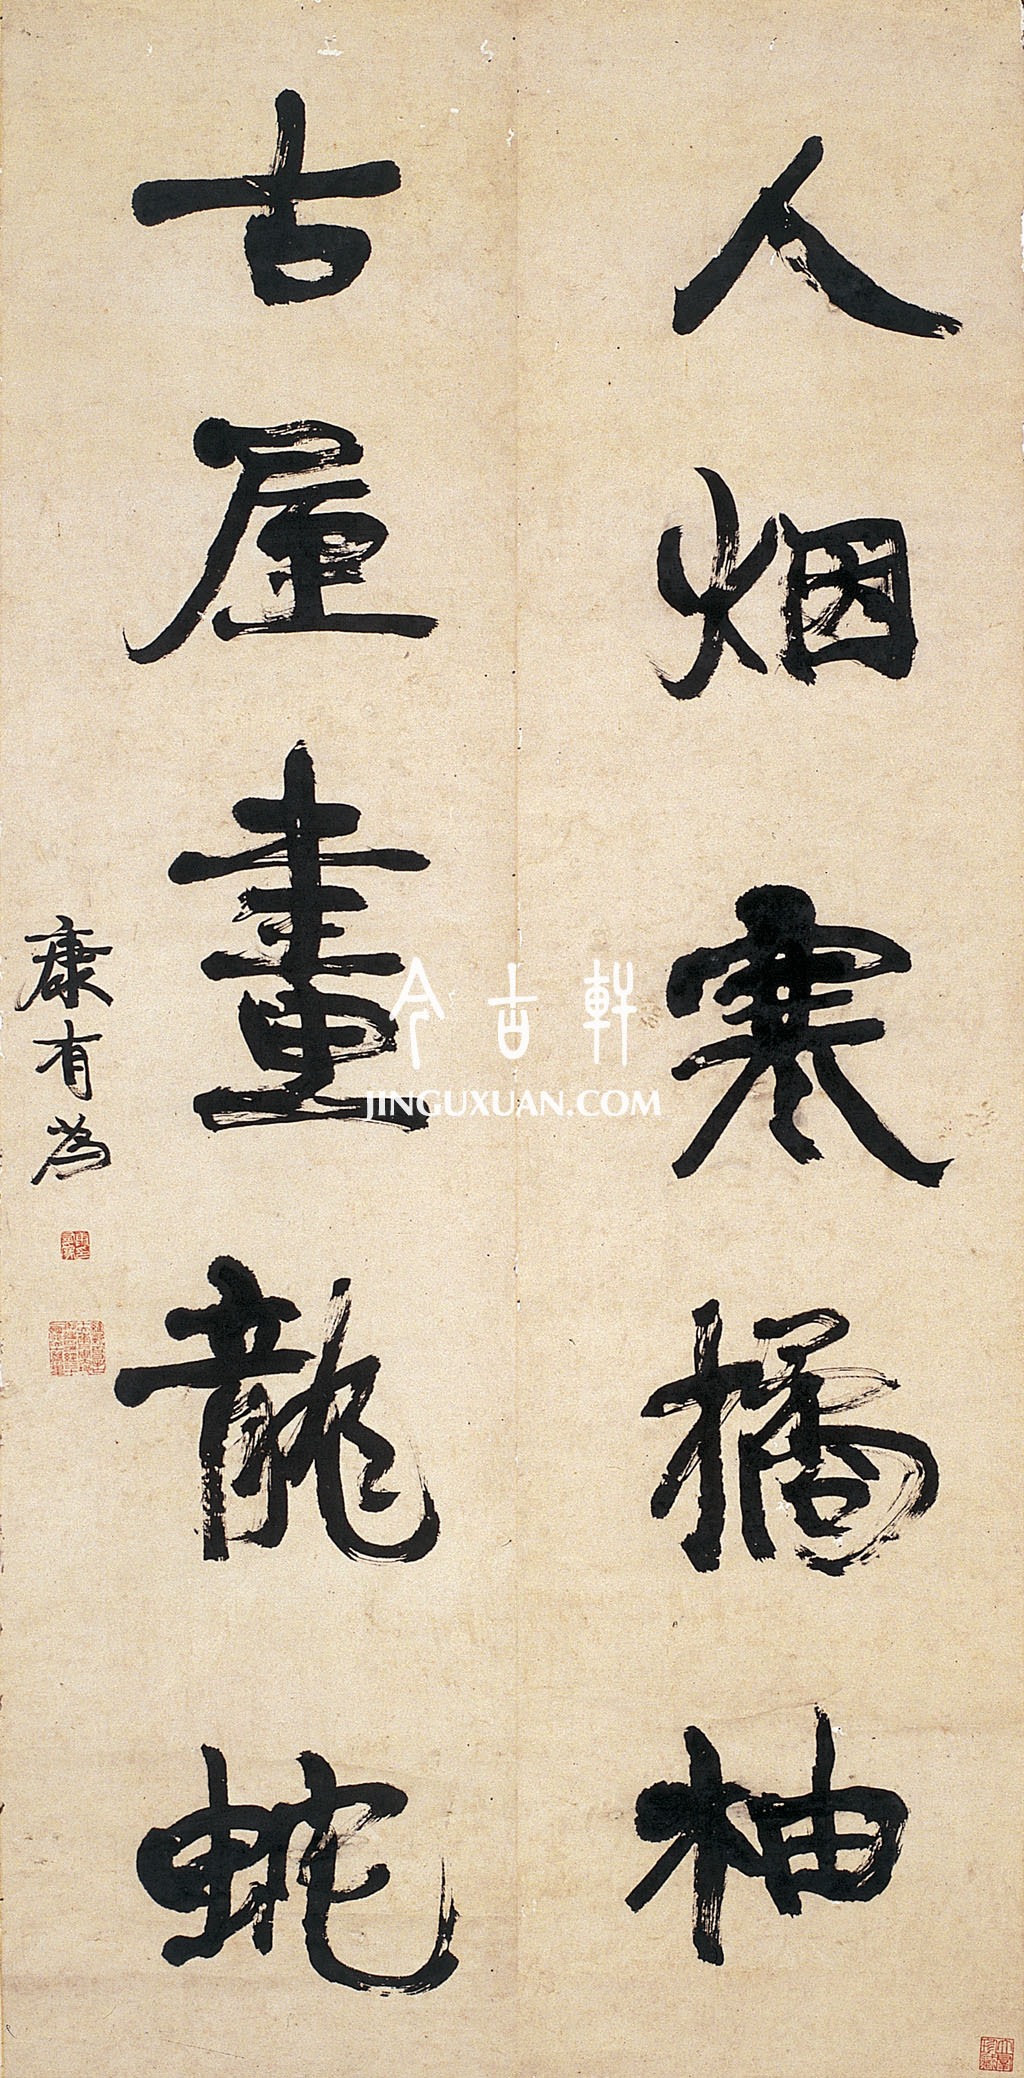 人烟寒橘柚
古屋畫龍蛇
康有為
今古軒
JINGUXUAN.COM